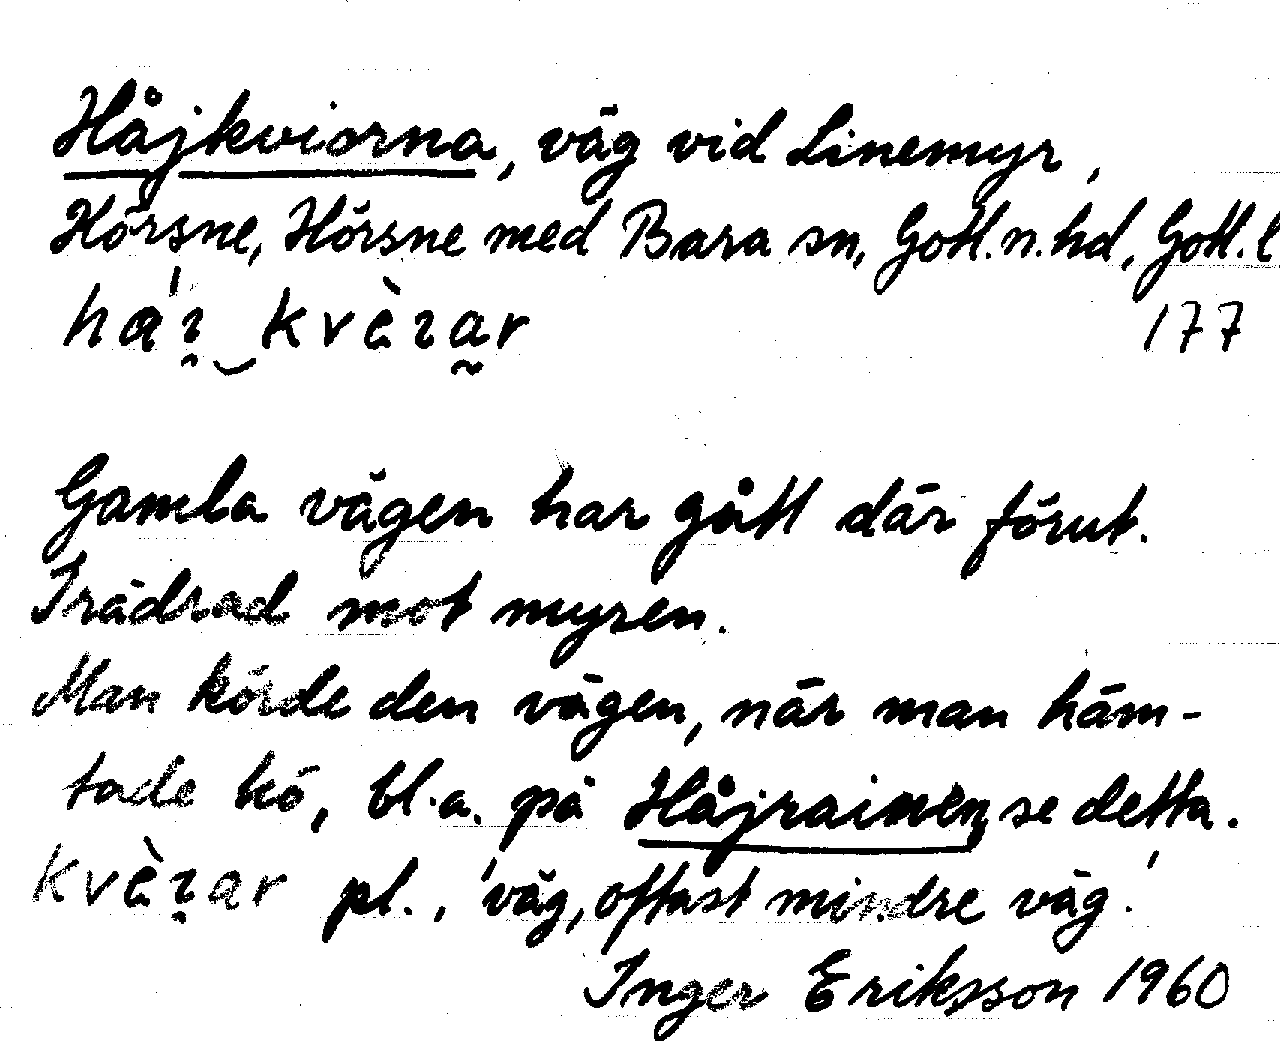 Håjkviorna, väg vid Linemyr,
Hörsne, Hörsne med Bara sn, Gotl.n.hd, Gotl.l
177
Gamla vägen har gått där förut.
Trädrad mot myren.
Man körde den vägen, när man häm-
tade hö, bl.a. på Håjrainen, se detta.
pl., 'väg, oftast mindre väg.'
Inger Eriksson 1960